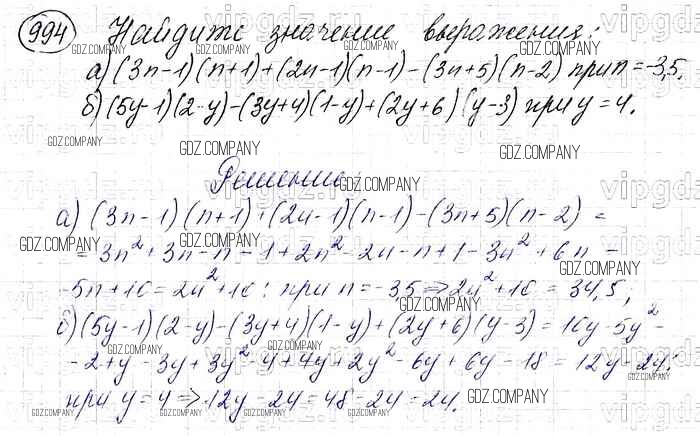 994 Найдите значение выражения:
а) (3n-1)(n+1)+(2n-1)(n-1)-(3n+5)(n-2) при n=-3,5.
б) (5y-1)(2-y)-(3y+4)(1-y)+(2y+6)(y-3) при y=4.
Решение
а) (3n-1)(n+1)+(2n-1)(n-1)-(3n+5)(n-2) =
= 3n²+3n-n-1+2n²-2n-n+1-3n²+6n-
-5n+10=2n²+10: при n=-3,5 ⇒ 2n²+10 = 34,5;
б) (5y-1)(2-y)-(3y+4)(1-y)+(2y+6)(y-3) = 10y-5y²-
-2+y-3y+3y²-4+4y+2y²-6y+6y-18 = 12y-24:
при y=4 ⇒ 12y-24=48-24=24.
GDZ.COMPANY
vipgdz